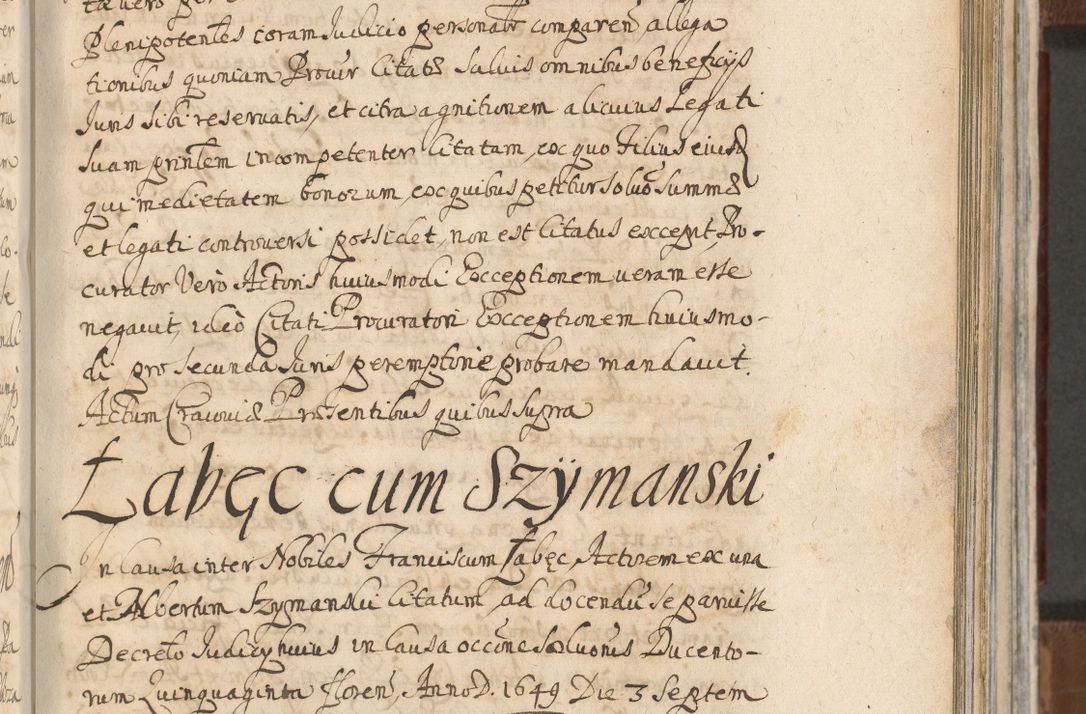 Plenipotentes coram Iudicio personalr comparen allega
tionibus quoniam Procur Citatæ saluis omnibus beneficijs
Iuris sibi reseruatis, et citra agnitionem alicuius Legati
suam prinlem incompetenter Citatam, ex quo Filius eiusd
qui medietatem bonorum, ex quibus petitur soluõ summæ
et legati controuersi possidet, non est Citatus excepit Pro-
curator Vero Actoris huiusmodi Exceptionem ueram esse
negauit, ideo Citati Procuratori Exceptionem huiusmo-
di pro secunda Iuris peremptorie probare mandauit.
Actum Cracouiæ Præsentibus quibus supra
Łabęc cum Szÿmanski
In Causa inter Nobiles Franciscum Łabęc Actorem ex una
et Albertum Szymanski Citatum, ad docendũ se paruisse
Decreto Iudicij huius in Causa occõne soluonis Ducento-
rum Quinquaginta floren, Anno D. 1649 Die 3 Septem